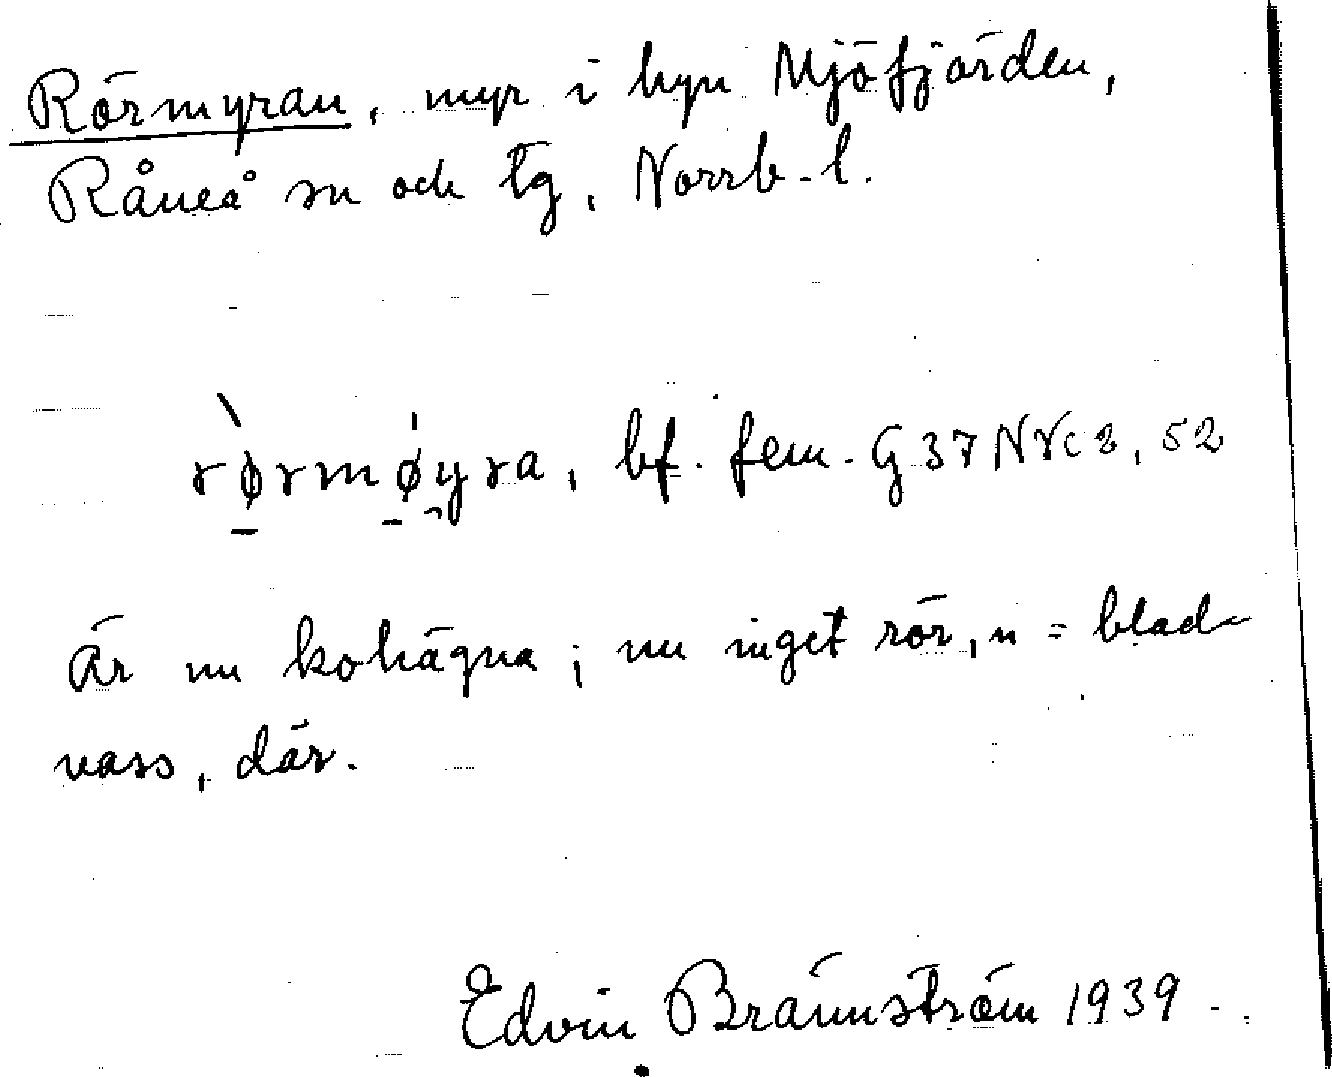 Rörmyran, myr i byn Mjöfjärden,
Råneå sn och tg, Norrb. l.
rø̀rmøyra, bf. fem. G 37 NV c 2, 52
Är nu kohägna; nu inget rör, n = blad-
vass, där.
Edvin Brännström 1939